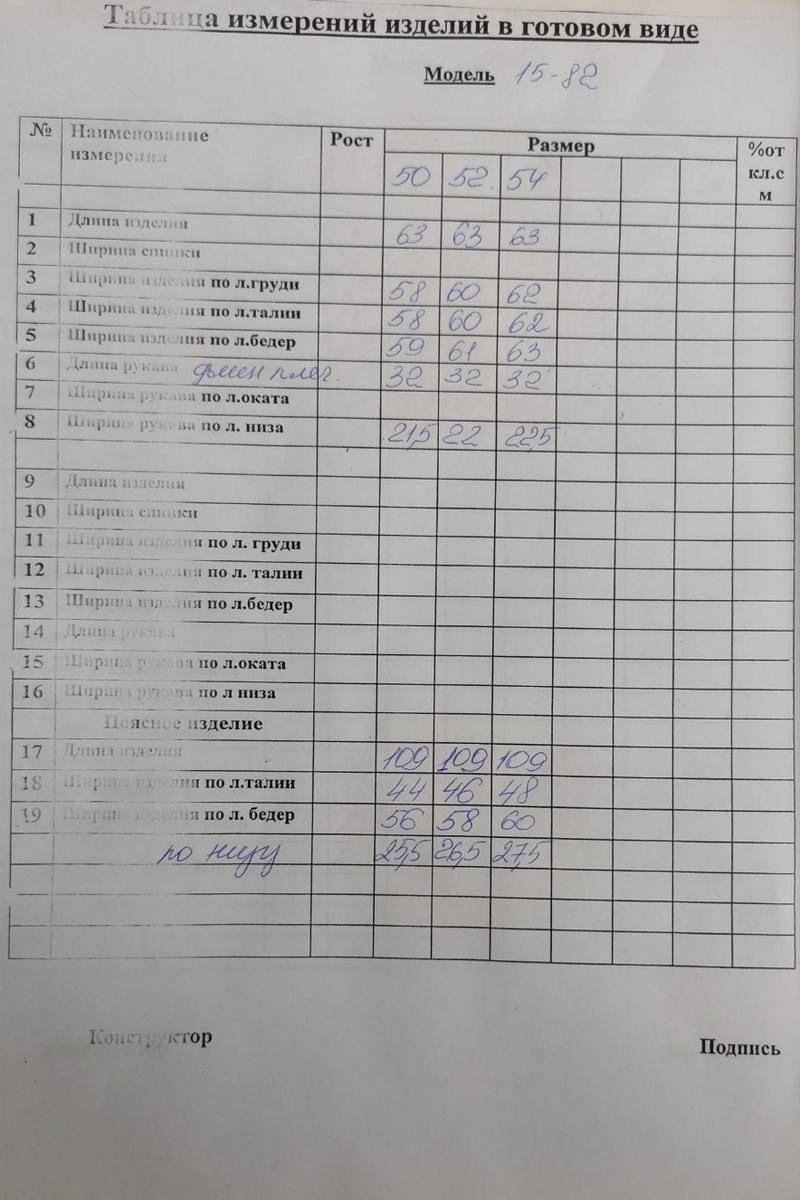 Таблица измерений изделий в готовом виде
Модель 15-82
№ Наименование измерения Рост Размер %от кл.с м
50 52 54
1 Длина изделия 63 63 63
2 Ширина спинки
3 Ширина изделия по л.груди 58 60 62
4 Ширина изделия по л.талии 58 60 62
5 Ширина изделия по л.бедер 59 61 63
6 Длина рукава 32 32 32
7 Ширина рукава по л.оката
8 Ширина рукава по л. низа 21,5 22 22,5
9 Длина изделия
10 Ширина спинки
11 Ширина изделия по л. груди
12 Ширина изделия по л. талии
13 Ширина изделия по л.бедер
14 Длина рукава
15 Ширина рукава по л.оката
16 Ширина рукава по л низа
Поясное изделие
17 Длина изделия 109 109 109
18 Ширина изделия по л.талии 44 46 48
19 Ширина изделия по л. бедер 56 58 60
по низу 25,5 26,5 27,5
Конструктор Подпись